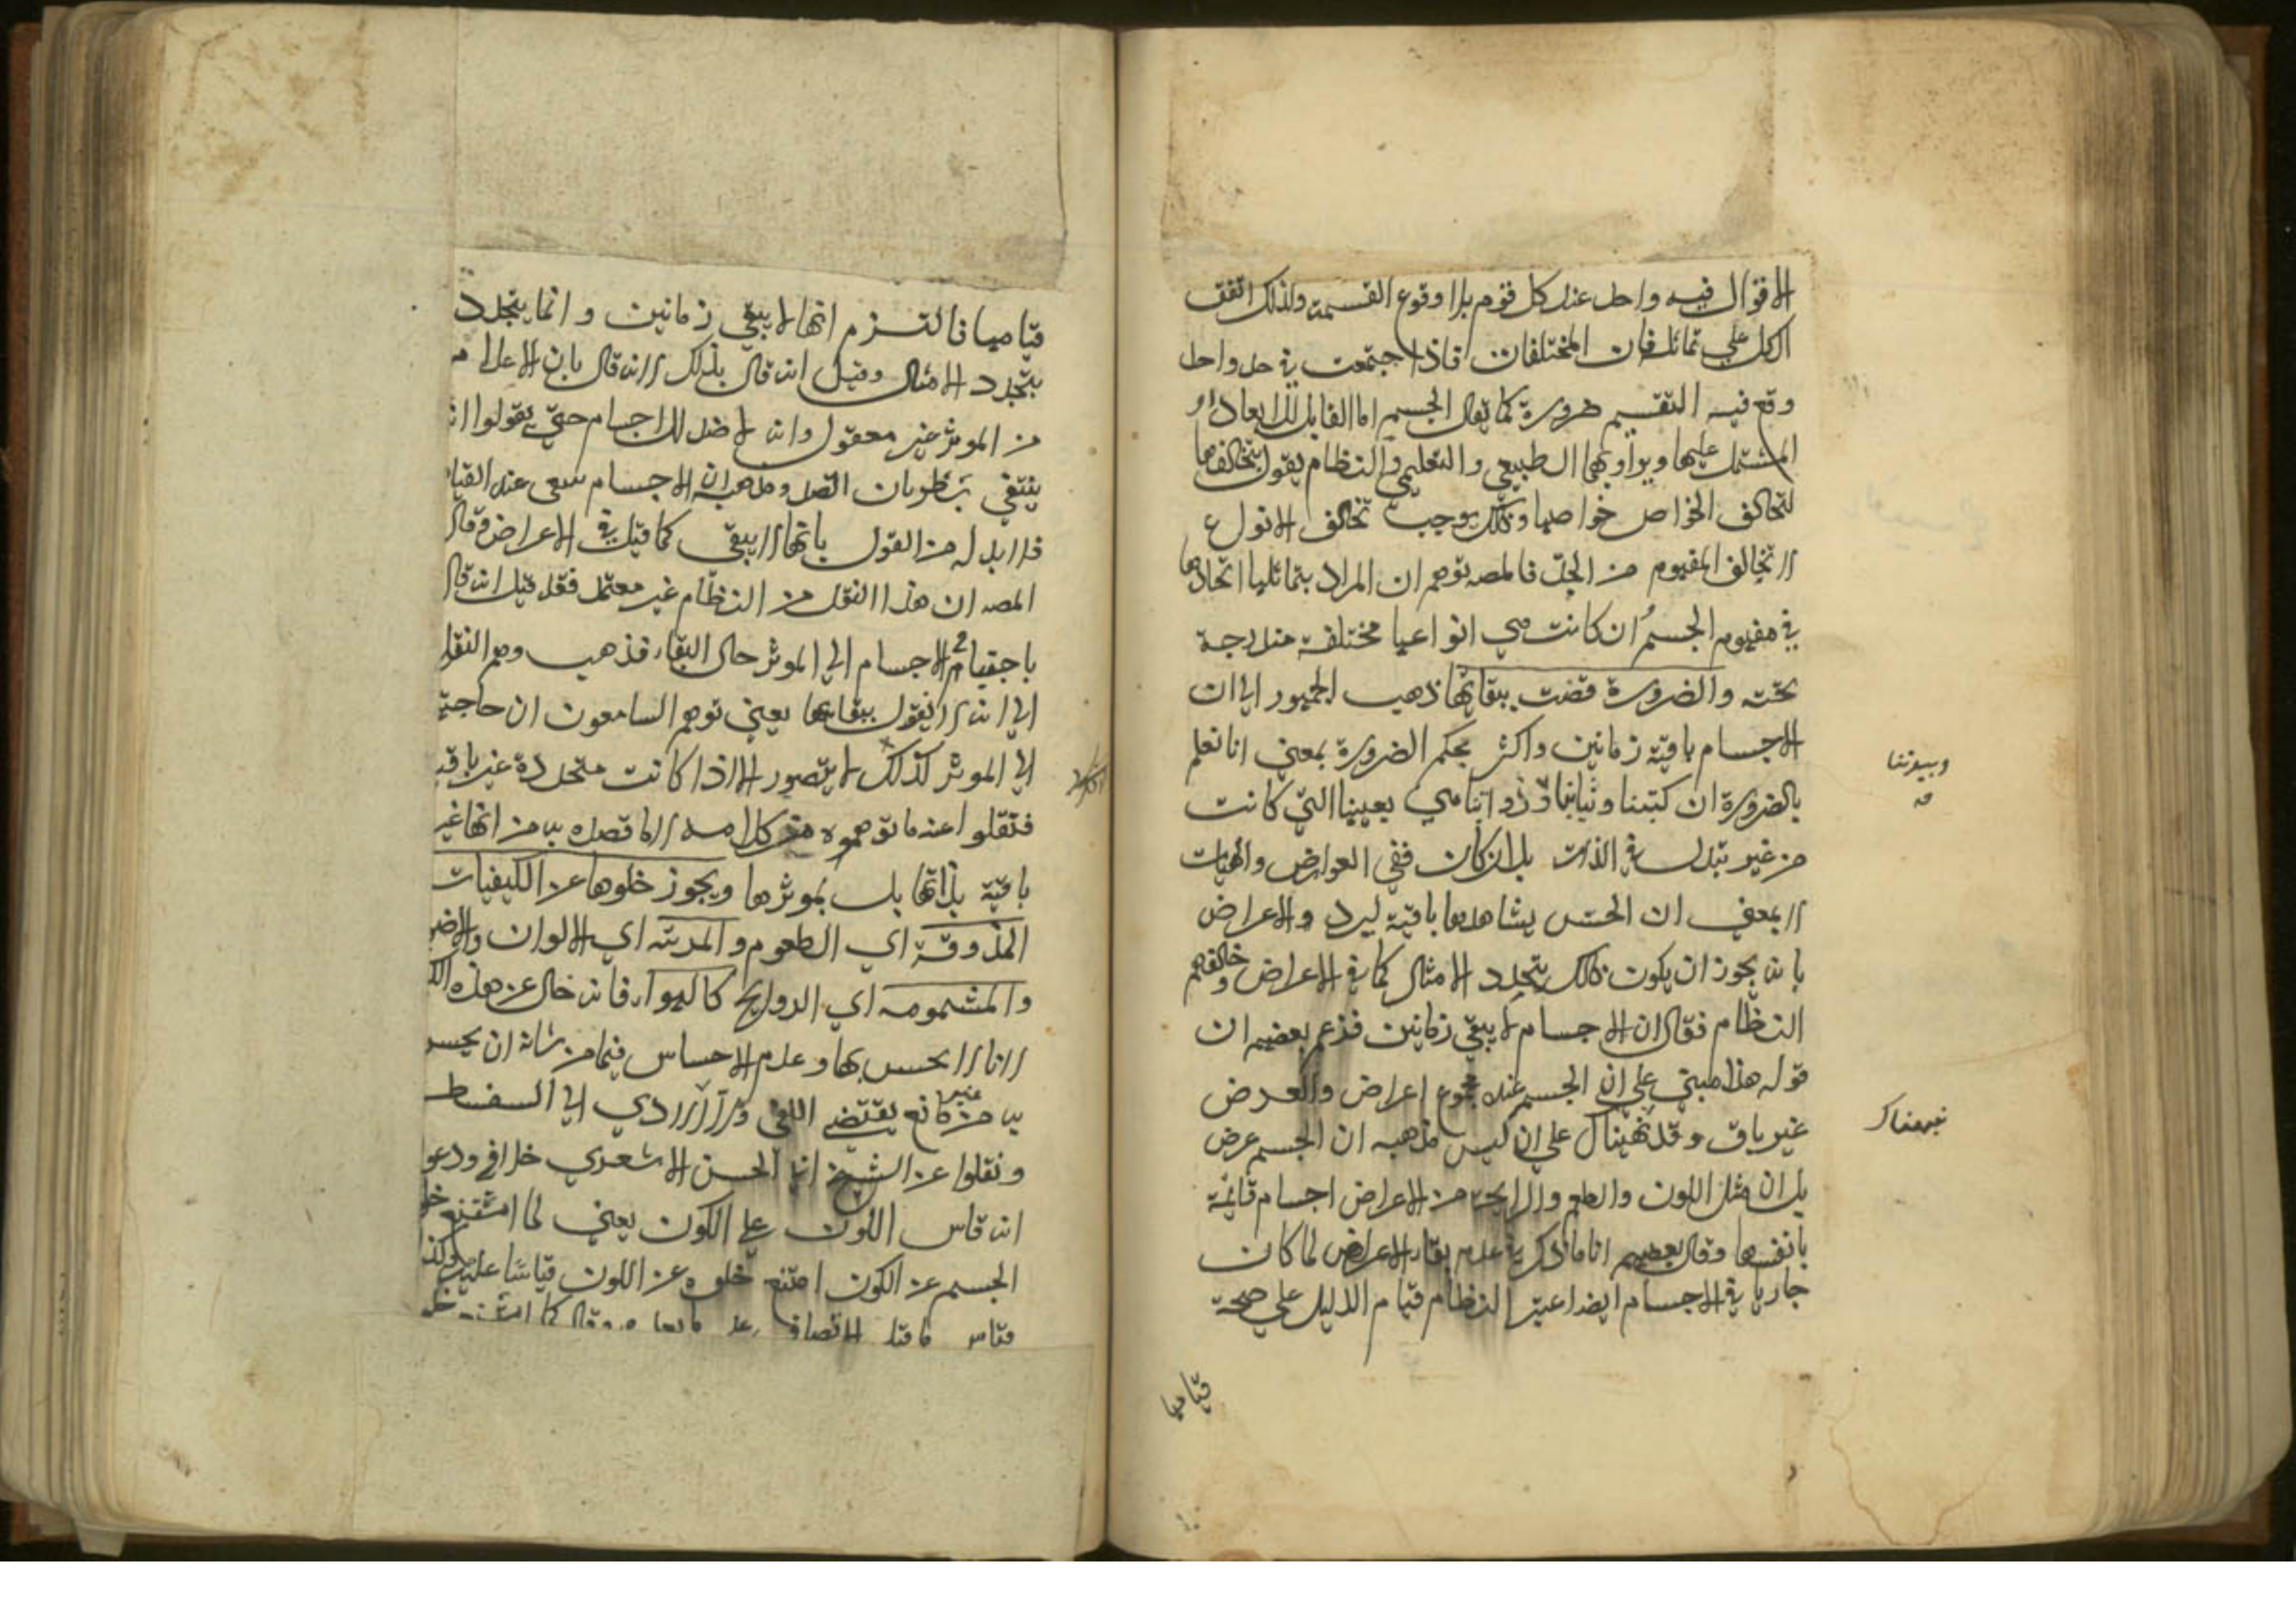 الاقوال فيه واحد عند كل قوم بلا وقوع القسمة ولذلك اتفق
الكل علي تماثلها فان المختلفات اذا اجتمعت في حد واحد
وقع فيه التقسيم ضرورة كما يقال الجسم اما القابل للابعاد او
المشتمل عليها ويراد بهما الطبيعي والتعليمي والنظام يقول بتخالفها
لتخالف الخواص خواصها وذلك يوجب تخالف الانواع
لا تخالف المفهوم من الحد فالمصه توهم ان المراد بتماثلها اتحادها
في مفهوم الجسم وان كانت هي انواعها مختلفة مندرجة
تحته والضرورة قضت ببقائها ذهب الجمهور الي ان
الاجسام باقية زمانين واكثر بحكم الضرورة بمعني انا نعلم
بالضرورة ان كتبنا وثيابنا وذواتنا هي بعينها التي كانت
من غير تبدل في الذات بل ان كان ففي العوارض والهيات
لا بمعني ان الحس يشاهدها باقية ليرد والاعراض
بانه يجوز ان يكون ذلك بتجدد الامثال كما في الاعراض وخالفهم
النظام فقال ان الاجسام لا يبقي زمانين فزعم بعضهم ان
قوله هذا مبني علي ان الجسم عنده مجموع اعراض والعرض
غير باق وقد نبهناك علي ان ليس مذهبه ان الجسم عرض
بل ان مثل اللون والطعم والرايحة من الاعراض اجسام قائمة
بانفسها وقال بعضهم انما ذكر في عدم بقاء الاعراض لما كان
جاريا في الاجسام ايضا اعتبر النظام قيام الدليل علي صحة
قيامها
وبيوتنا
صه
نبهناك
قيامها فالتزم انها لا يبقي زمانين وانما يتجدد
بتجدد الامثال وقيل انه قال بذلك لانه قال بان الاعدام
من الموثر غير معقول وانه لا ضد للاجسام حتي يقولوا انه
ينتفي بطريان الضد ومذهبه ان الاجسام تنتفي عند القيا
فلا بد له من القول بانها لا يبقي كما قيل في الاعراض وقال
المصه ان هذا النقل من النظام غير معتمد فقد قيل انه قال
باحتياج الاجسام الي الموثر حال البقاء فذهب وهم النقلة
الي انه لا يقول ببقائها يعني توهم السامعون ان حاجتها
الي الموثر كذلك لا يتصور الا اذا كانت متجددة غير باقية
فنقلوا عنه ما توهموه من كلامه لا ما قصده به من انها غير
باقية بذاتها بل بموثرها ويجوز خلوها عن الكيفيات
المذوقة اي الطعوم والمرئية اي الالوان والاضو
والمشمومه اي الروايح كالهواء فانه خال عن هذه
لانا لا نحس بها وعدم الاحساس فيما من شانه ان يحس
به من غير مانع يقتضي النفي والا لادي الي السفسط
ونقلوا عن الشيخ ابي الحسن الاشعري خلافه ودعو
انه قاس اللون علي الكون يعني لما امتنع خلو
الجسم عن الكون امتنع خلوه عن اللون قياسا عليه وكذا
قاس ما قبل الاتصاف علي ما بعده وقال كما امتنع خلو